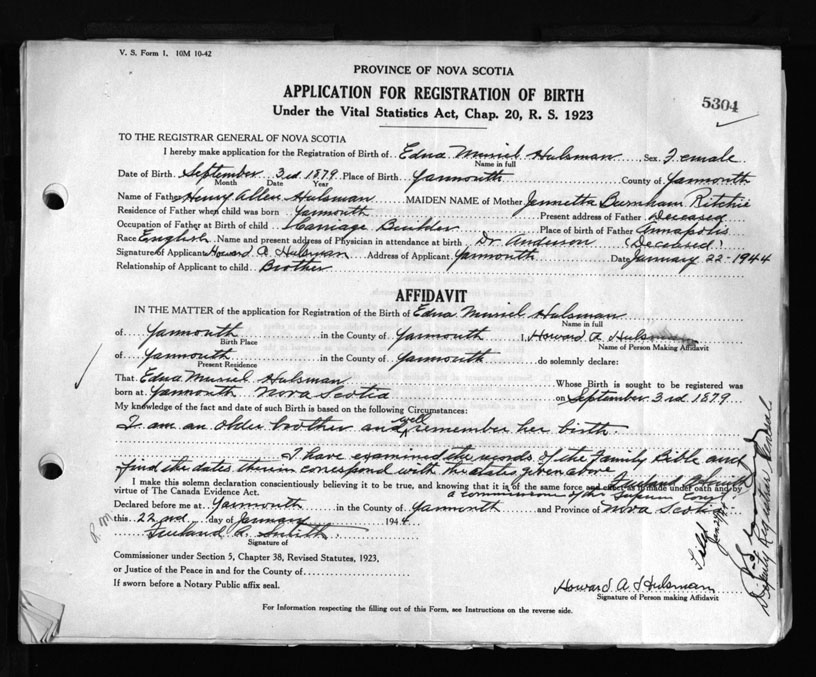 V. S. Form 1. 10M 10-42
PROVINCE OF NOVA SCOTIA
APPLICATION FOR REGISTRATION OF BIRTH
5304
Under the Vital Statistics Act, Chap. 20, R. S. 1923
TO THE REGISTRAR GENERAL OF NOVA SCOTIA
I hereby make application for the Registration of Birth of Edna Muriel Hulsman Sex Female
Name in full
Date of Birth September 3rd 1879 Place of Birth Yarmouth County of Yarmouth
Month Date Year
Name of Father Henry Allen Hulsman MAIDEN NAME of Mother Jannetta Burnham Ritchie
Residence of Father when child was born Yarmouth Present address of Father Deceased
Occupation of Father at Birth of child Carriage Builder Place of birth of Father Annapolis
Race English Name and present address of Physician in attendance at birth Dr. Anderson (Deceased)
Signature of Applicant Howard A Hulsman Address of Applicant Yarmouth Date January 22-1944
Relationship of Applicant to child Brother
AFFIDAVIT
IN THE MATTER of the application for Registration of the Birth of Edna Muriel Hulsman
Name in full
of Yarmouth in the County of Yarmouth I Howard A. Hulsman
Birth Place Name of Person Making Affidavit
of Yarmouth in the County of Yarmouth do solemnly declare:
Present Residence
That Edna Muriel Hulsman Whose Birth is sought to be registered was
born at Yarmouth Nova Scotia on September 3rd 1879
My knowledge of the fact and date of such Birth is based on the following Circumstances:
I am an older brother and well remember her birth.
I have examined the records of the Family Bible and
find the dates therein correspond with the dates given above
I make this solemn declaration conscientiously believing it to be true, and knowing that it is of the same force and effect as if made under oath and by
virtue of The Canada Evidence Act. a commissioner of the Supreme Court
Declared before me at Yarmouth in the County of Yarmouth and Province of Nova Scotia
this 22nd day of January 1944
Signature of
Commissioner under Section 5, Chapter 38, Revised Statutes, 1923,
or Justice of the Peace in and for the County of
If sworn before a Notary Public affix seal.
Howard A. Hulsman
Signature of Person making Affidavit
For Information respecting the filling out of this Form, see Instructions on the reverse side.
Filed
Deputy Registrar General